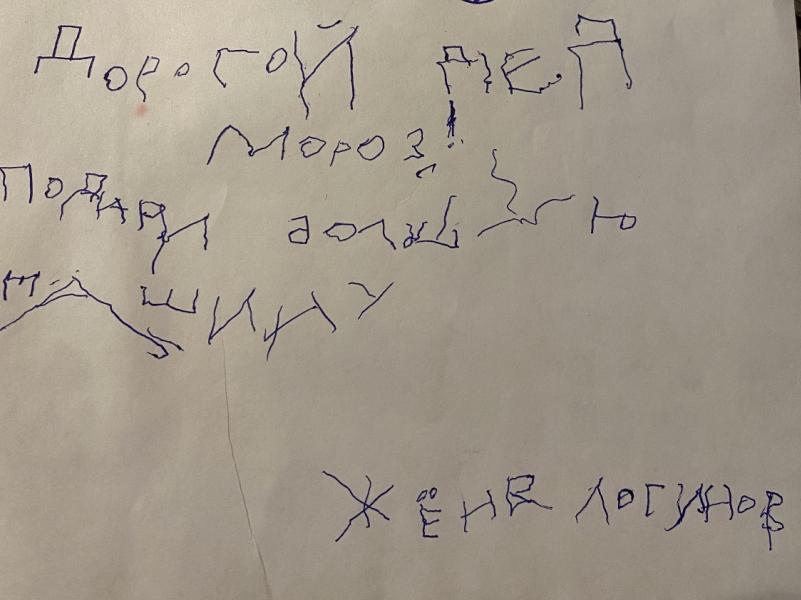 Дорогой дед
Мороз!
Подари большую
машину
Жёня Логунов